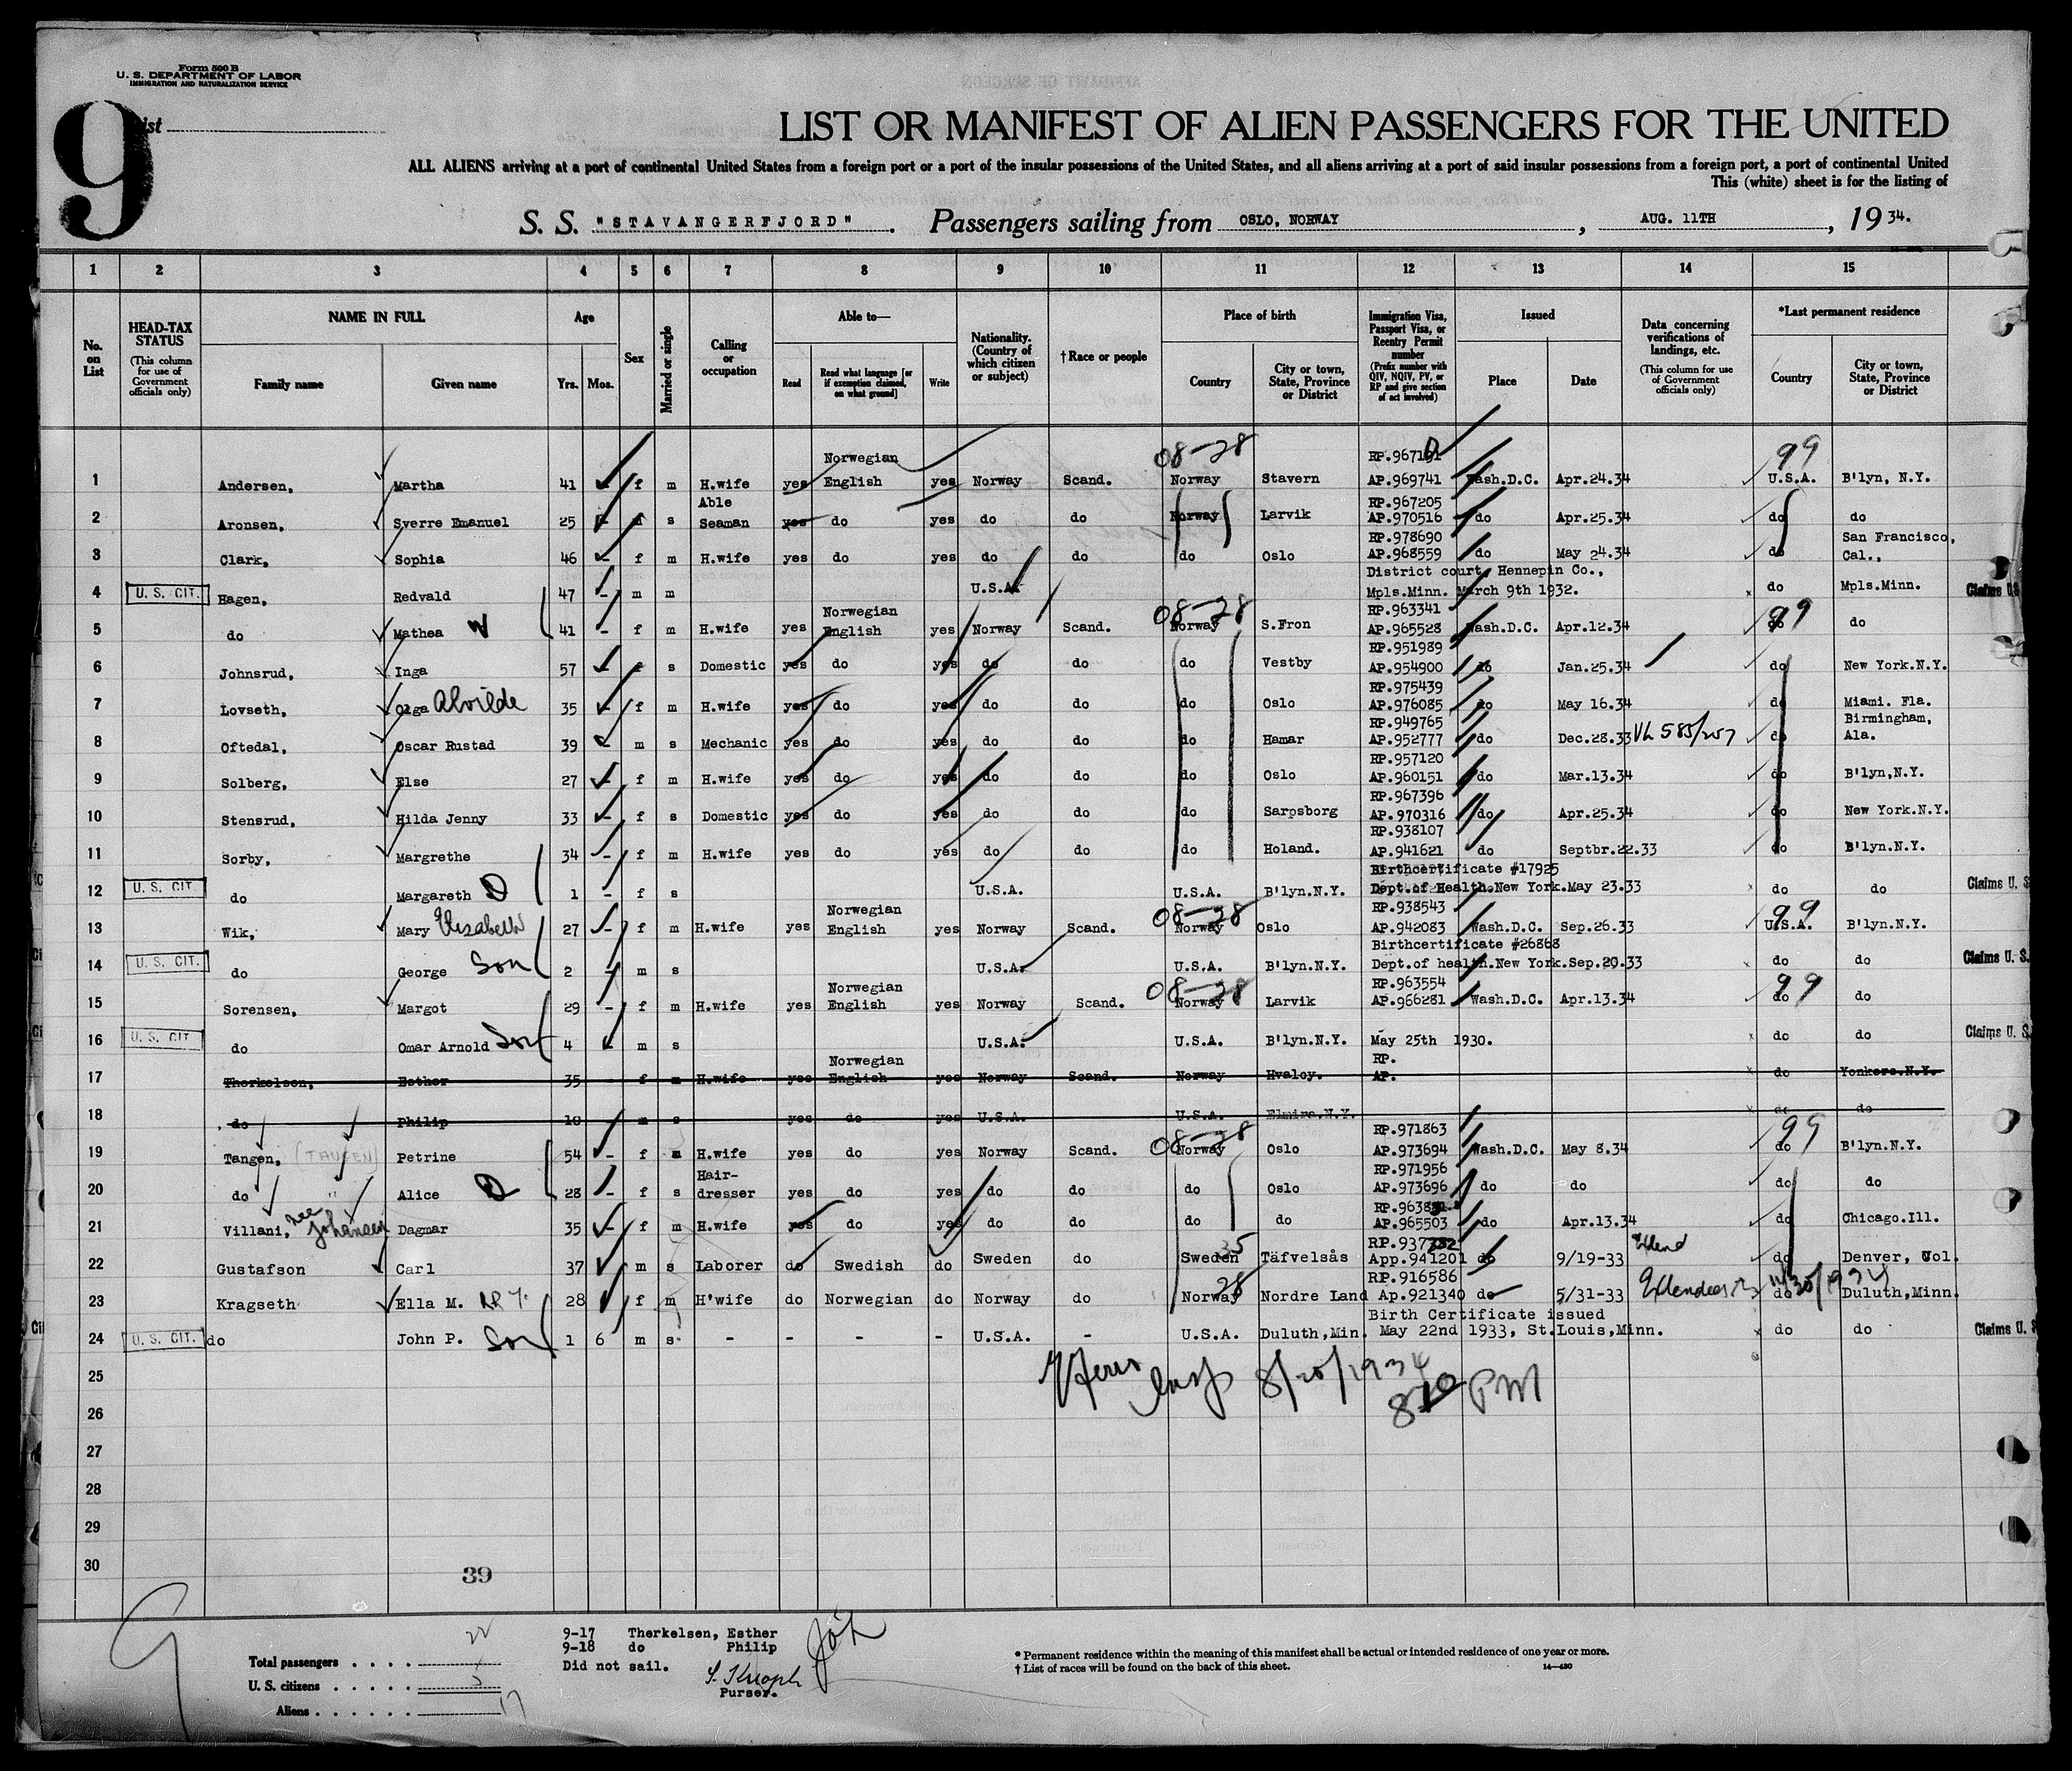 Form 500 B
U. S. DEPARTMENT OF LABOR
IMMIGRATION AND NATURALIZATION SERVICE
9
List
LIST OR MANIFEST OF ALIEN PASSENGERS FOR THE UNITED
ALL ALIENS arriving at a port of continental United States from a foreign port or a port of the insular possessions of the United States, and all aliens arriving at a port of said insular possessions from a foreign port, a port of continental United
This (white) sheet is for the listing of
S. S. "STAVANGERFJORD" . Passengers sailing from OSLO, NORWAY , AUG. 11TH , 1934.
1 2 3 4 5 6 7 8 9 10 11 12 13 14 15
No. on List
HEAD-TAX STATUS (This column for use of Government officials only)
NAME IN FULL Family name Given name
Age Yrs. Mos.
Sex
Married or single
Calling or occupation
Able to— Read Read what language [or if exemption claimed, on what ground] Write
Nationality. (Country of which citizen or subject)
†Race or people
Place of birth Country City or town, State, Province or District
Immigration Visa, Passport Visa, or Reentry Permit number (Prefix number with QIV, NQIV, PV, or RP and give section of act involved)
Issued Place Date
Data concerning verifications of landings, etc. (This column for use of Government officials only)
*Last permanent residence Country City or town, State, Province or District
Norwegian 08-28 99
1 Andersen, Martha 41 f m H.wife yes English yes Norway Scand. Norway Stavern AP.969741 Wash.D.C. Apr.24.34 U.S.A. B'lyn, N.Y.
Able RP.967205
2 Aronsen, Sverre Emanuel 25 s Seaman yes do yes do do Norway Larvik AP.970516 do Apr.25.34 do do
RP.978690 San Francisco,
3 Clark, Sophia 46 f m H.wife yes do yes do do do Oslo AP.968559 do May 24.34 do Cal.,
District court, Hennepin Co.,
4 U. S. CIT. Hagen, Redvald 47 - m m U.S.A. Mpls.Minn. March 9th 1932. do Mpls.Minn. Claims U.S
Norwegian 08-28 RP.963341 99
5 do Mathea W 41 - f m H.wife yes English yes Norway Scand. Norway S.Fron AP.965528 Wash.D.C. Apr.12.34 do do
RP.951989
6 Johnsrud, Inga 57 - f s Domestic yes do yes do do do Vestby AP.954900 do Jan.25.34 do New York.N.Y.
RP.975439
7 Lovseth, Olga Alvilde 35 - f m H.wife yes do yes do do do Oslo AP.976085 do May 16.34 do Miami. Fla.
RP.949765 Birmingham,
8 Oftedal, Oscar Rustad 39 - m s Mechanic yes do yes do do do Hamar AP.952777 do Dec.28.33 VL 585/257 do Ala.
RP.957120
9 Solberg, Else 27 - f m H.wife yes do yes do do do Oslo AP.960151 do Mar.13.34 do B'lyn,N.Y.
RP.967396
10 Stensrud, Hilda Jenny 33 - f s Domestic yes do yes do do do Sarpsborg AP.970316 do Apr.25.34 do New York.N.Y.
RP.938107
11 Sorby, Margrethe 34 - f m H.wife yes do yes do do do Holand. AP.941621 do Septbr.22.33 do B'lyn.N.Y.
Birthcertificate #17925
12 U. S. CIT. do Margareth D 1 - f s U.S.A. U.S.A. B'lyn.N.Y. Dept.of Health.New York.May 23.33 do do Claims U. S
Norwegian 08-28 RP.938543 99
13 Wik, Mary Elizabeth 27 - f m H.wife yes English yes Norway Scand. Norway Oslo AP.942083 Wash.D.C. Sep.26.33 U.S.A. B'lyn.N.Y.
Birthcertificate #26868
14 U. S. CIT. do George Son 2 - m s U.S.A. U.S.A. B'lyn.N.Y. Dept.of health.New York.Sep.20.33 do do Claims U. S.
Norwegian 08-28 RP.963554 99
15 Sorensen, Margot 29 - f m H.wife yes English yes Norway Scand. Norway Larvik AP.966281 Wash.D.C. Apr.13.34 do do
16 U. S. CIT. do Omar Arnold Son 4 m s U.S.A. U.S.A. B'lyn.N.Y. May 25th 1930. do do Claims U. S
Norwegian RP.
17 Therkelsen, Esther 35 f m H.wife yes English yes Norway Scand. Norway Hvaloy. AP. do Yonkers.N.Y.
18 do Philip 10 m s yes do yes U.S.A. U.S.A. Elmira.N.Y. do do
08-28 RP.971863 99
19 Tangen, (TAUGEN) Petrine 54 - f m H.wife yes do yes Norway Scand. Norway Oslo AP.973694 Wash.D.C. May 8.34 do B'lyn.N.Y.
Hair- RP.971956
20 do " Alice D 28 - f s dresser yes do yes do do do Oslo AP.973696 do do do do
21 Villani, nee Johansen Dagmar 35 - f m H.wife yes do yes do do do do AP.965503 do Apr.13.34 do Chicago.Ill.
35 Extend
22 Gustafson Carl 37 m s Laborer do Swedish do Sweden do Sweden Täfvelsås App.941201 do 9/19-33 do Denver, Col.
28 RP.916586
23 Kragseth Ella M. 28 f m H'wife do Norwegian do Norway do Norway Nordre Land Ap.921340 do 5/31-33 Extended to 11/30/1934 do Duluth,Minn.
Birth Certificate issued
24 U. S. CIT. do John P. Son 1 6 m s - - - - U.S.A. - U.S.A. Duluth,Min. May 22nd 1933, St.Louis,Minn. do do Claims U. S
25
26
8/20/1934
8 10 PM
27
28
29
30
39
9
Total passengers . . . . 22
U. S. citizens . . . . . 5
Aliens . . . . . . 17
9-17 Therkelsen, Esther
9-18 do Philip
Did not sail.
Purser.
* Permanent residence within the meaning of this manifest shall be actual or intended residence of one year or more.
† List of races will be found on the back of this sheet.
14—430